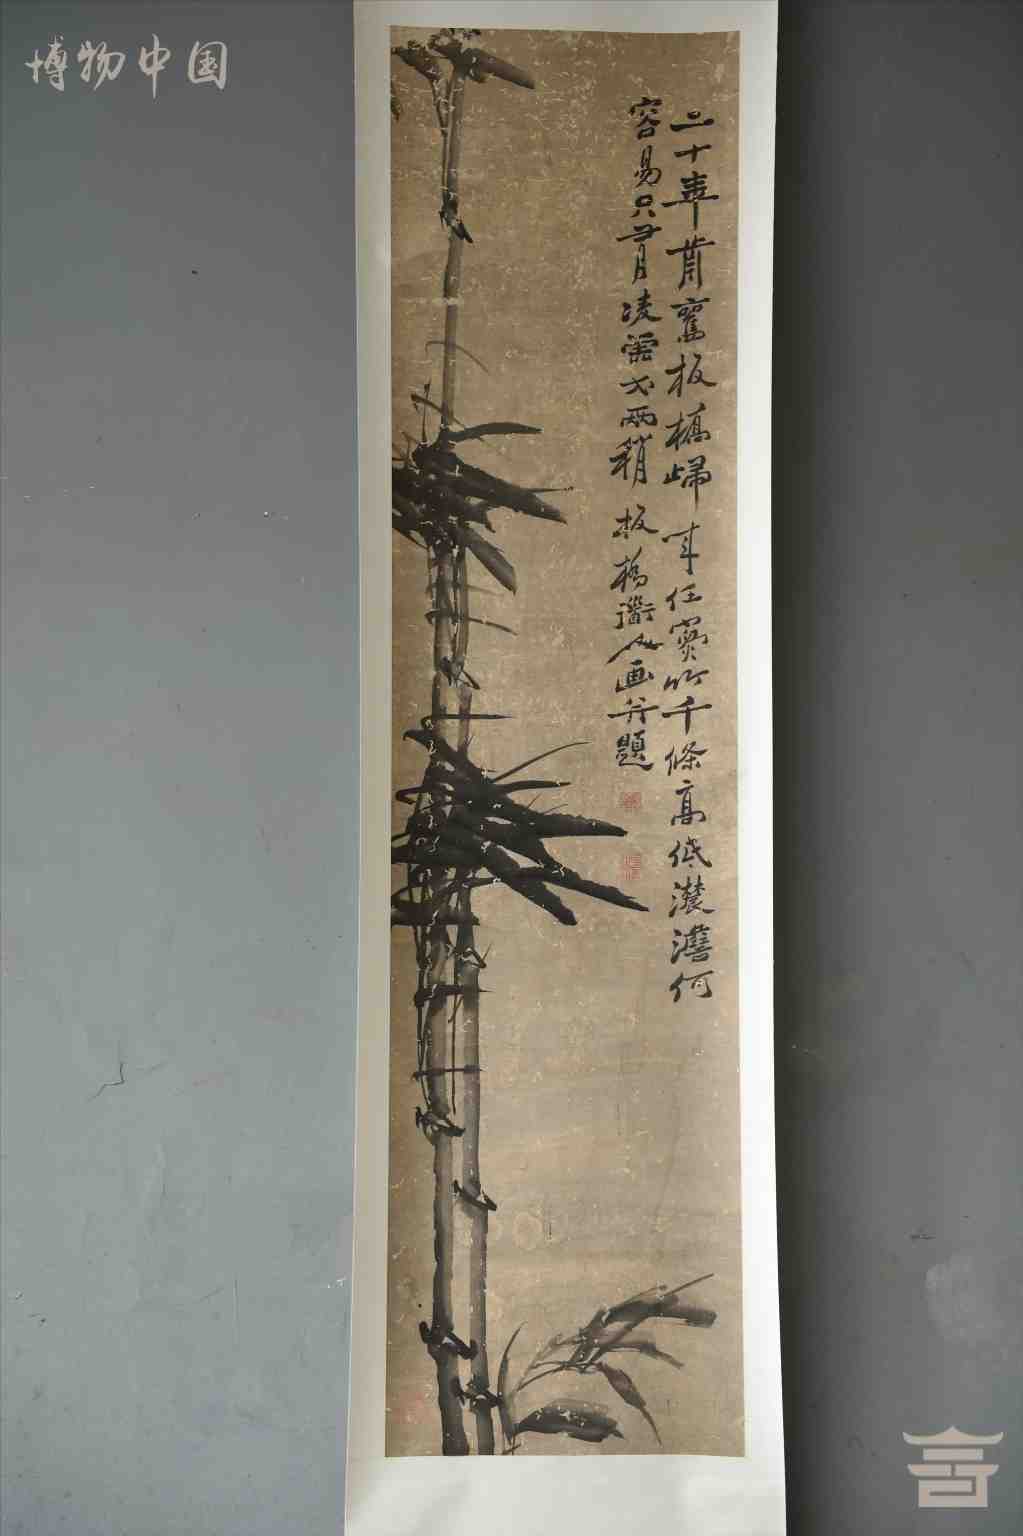 博物中国
二十年前舊板橋歸来任寫竹千條高低濃澹何
容易只有凌雲兩稍 板橋道人画并題